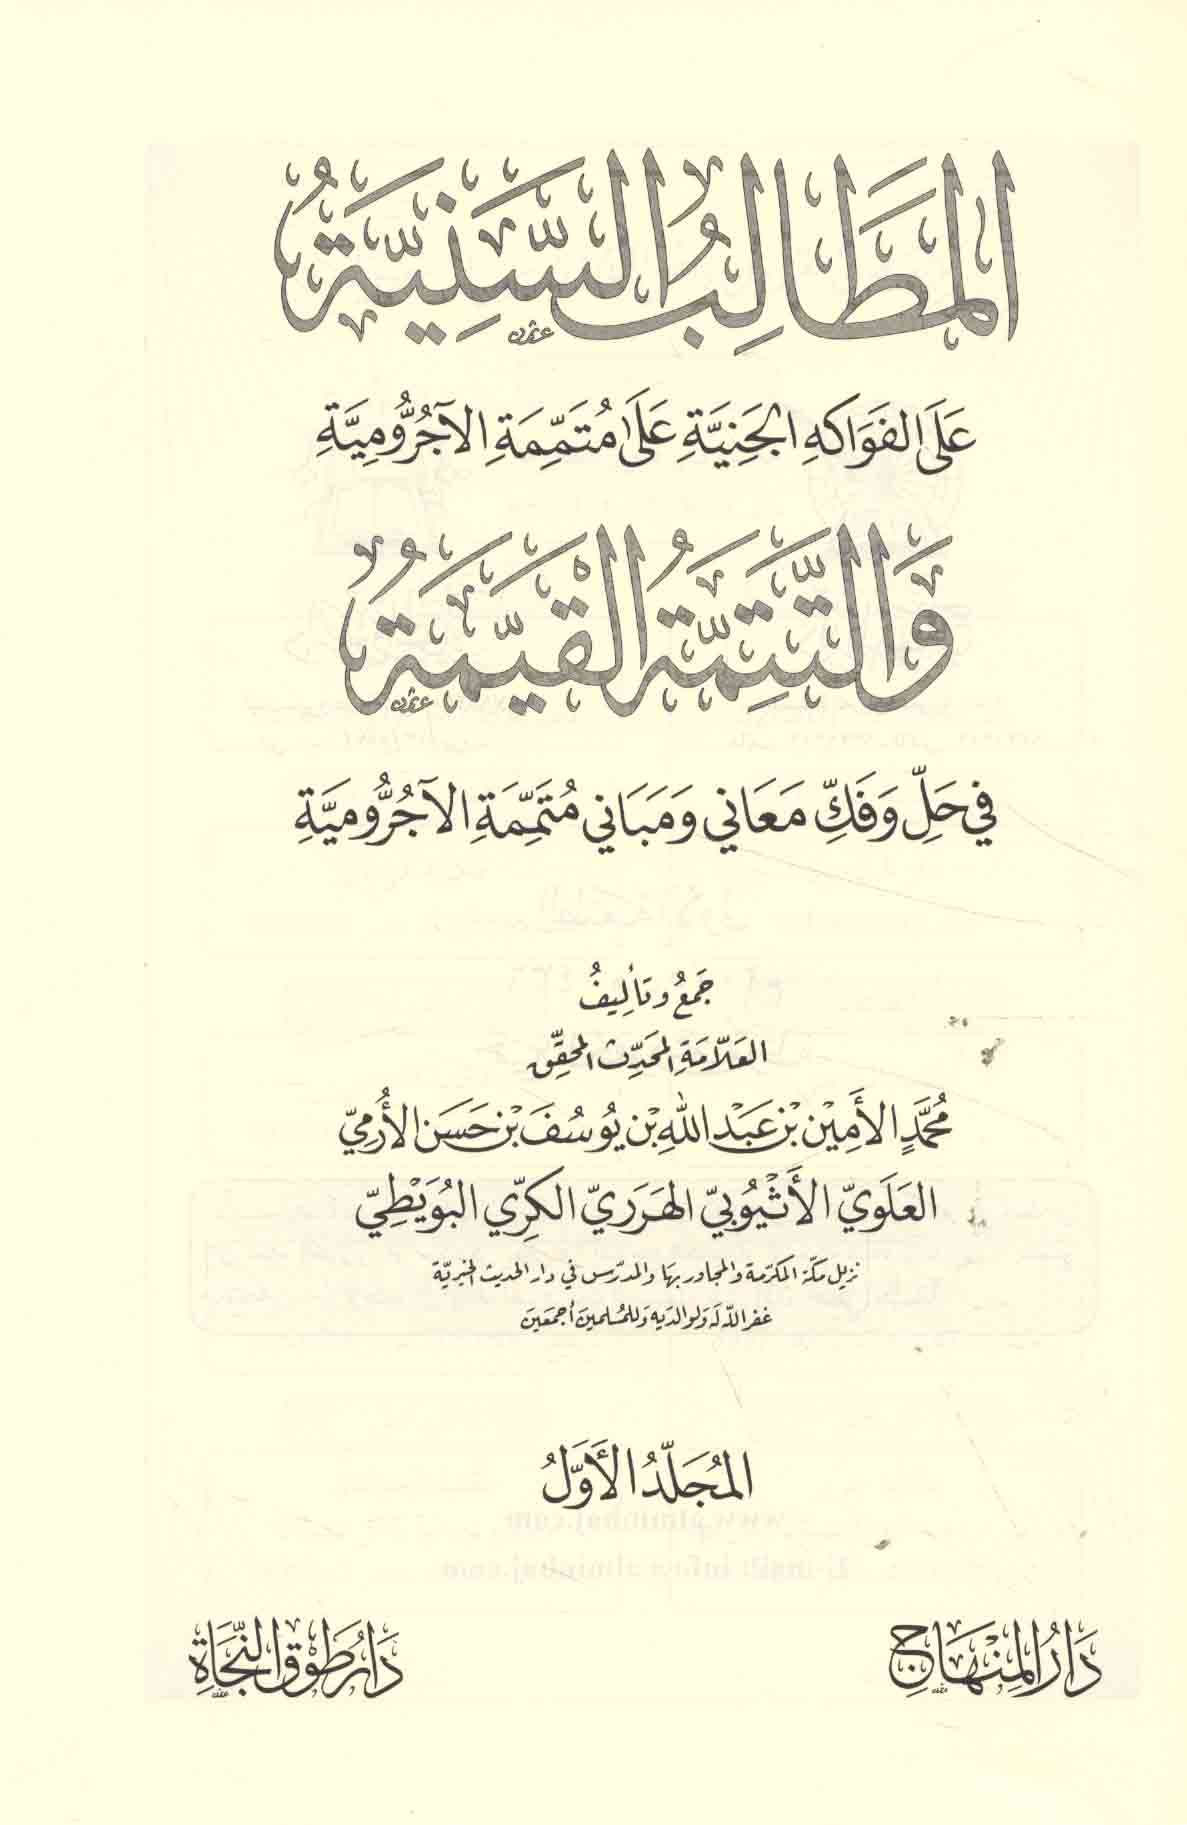 المَطَالِبُ السَّنِيَّةُ
عَلَى الفَوَاكِهِ الجَنِيَّةِ عَلَى مُتَمِّمَةِ الآجُرُّومِيَّةِ
وَالتَّتِمَّةُ القَيِّمَةُ
في حَلِّ وَفَكِّ مَعَاني وَمَبَاني مُتَمِّمَةِ الآجُرُّوميَّةِ
جَمعُ وتأليفُ
العَلّامَةِ المحَدِّث المحقِّق
مُحَمَّدٍ الأَمِيْن بْن عَبْد اللهِ بْن يُوسُفَ بْن حَسَن الأُرَميّ
العَلَويّ الأَثْيُوبيّ الهَرَريّ الكَرِّي البُوَيْطِيّ
نزيل مكّة المكرّمة والمجاور بها والمدرّس في دار الحديث الخيريّة
غفر الله له ولوالديه وللمُسلمينَ أجمَعينَ
المُجَلّدُ الأَوَّلُ
دَارُ المِنْهَاجِ
دَارُ طَوْقِ النَّجَاةِ